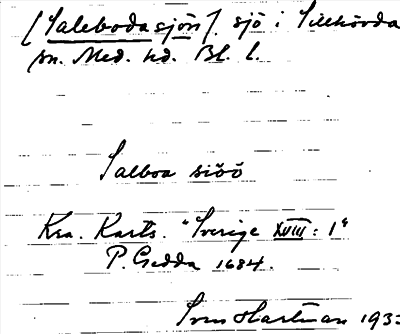 [Saleboda sjön]. sjö i Tillhövda
sn. Med. hd. Bl. l.
Salboa siöö
Kra. Kartv. "Sverige XVIII: 1"
P. Gedda 1684.
Sven Hartman 193